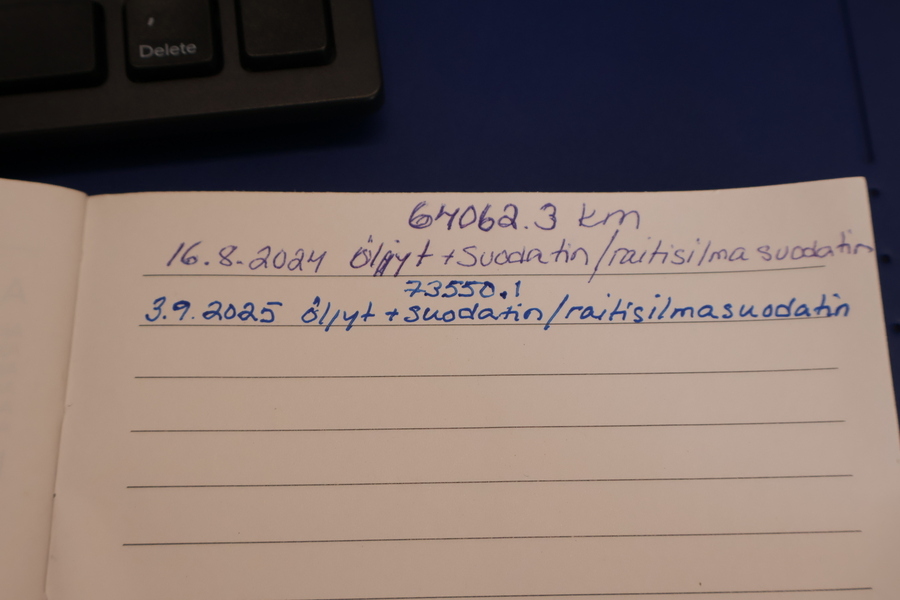 Delete
64062.3 km
16.8.2024 Öljyt + Suodatin/raitisilma suodatin
73550.1
3.9.2025 Öljyt + suodatin/raitisilmasuodatin